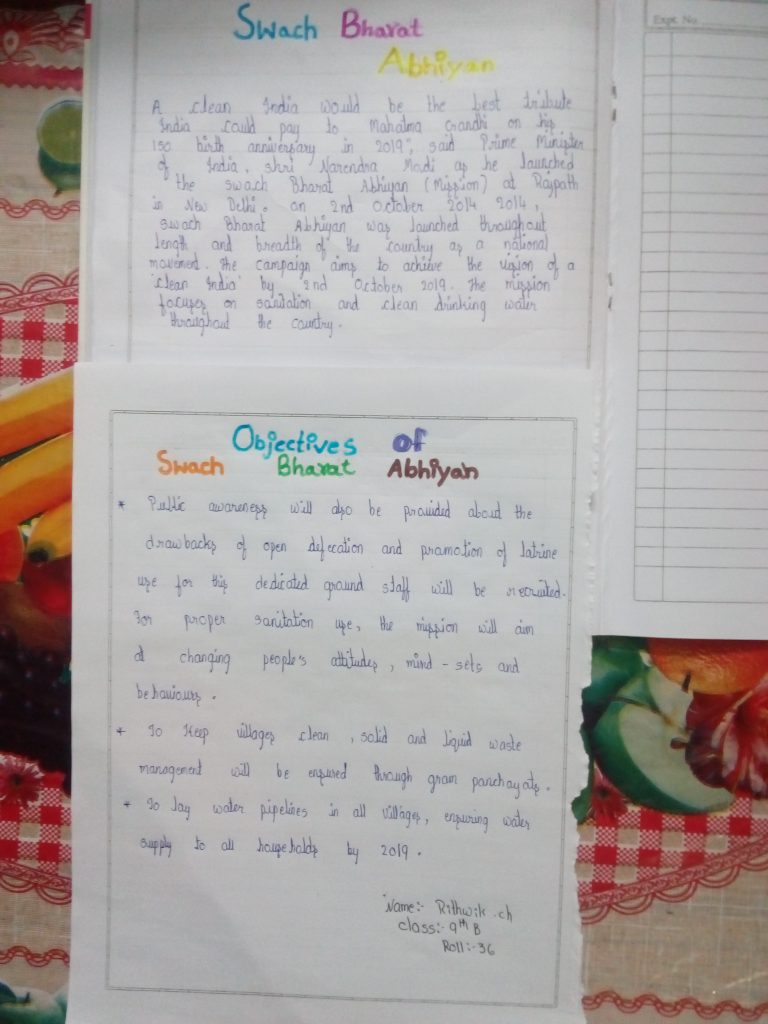 Swach Bharat
Abhiyan
A clean India would be the best tribute
India could pay to Mahatma Gandhi on his
150 birth anniversary in 2019", said Prime Minister
of India, shri Narendra Modi as he launched
the swach Bharat Abhiyan (Mission) at Rajpath
in New Delhi. on 2nd October 2014 2014,
swach Bharat Abhiyan was launched throughout
length and breadth of the country as a national
movement. The campaign aims to achieve the vision of a
'clean India' by 2nd October 2019. The mission
focuses on sanitation and clean drinking water
throughout the country.
Expt. No.
Objectives of
Swach Bharat Abhiyan
* Public awareness will also be provided about the
drawbacks of open defecation and promotion of latrine
use for this dedicated ground staff will be recruited.
For proper sanitation use, the mission will aim
at changing people's attitudes, mind-sets and
behaviours.
* To Keep villages clean, solid and liquid waste
management will be ensured through gram panchayats.
* To lay water pipelines in all villages, ensuring water
supply to all households by 2019.
Name:- Rithwik.ch
class:- 9th B
Roll:-36